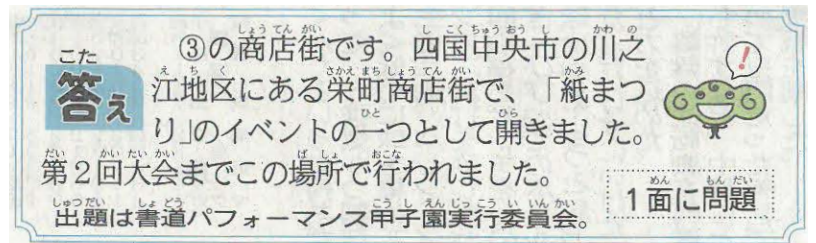 答え
③の商店街です。四国中央市の川之
江地区にある栄町商店街で、「紙まつ
り」のイベントの一つとして開きました。
第2回大会までこの場所で行われました。
出題は書道パフォーマンス甲子園実行委員会。
1面に問題